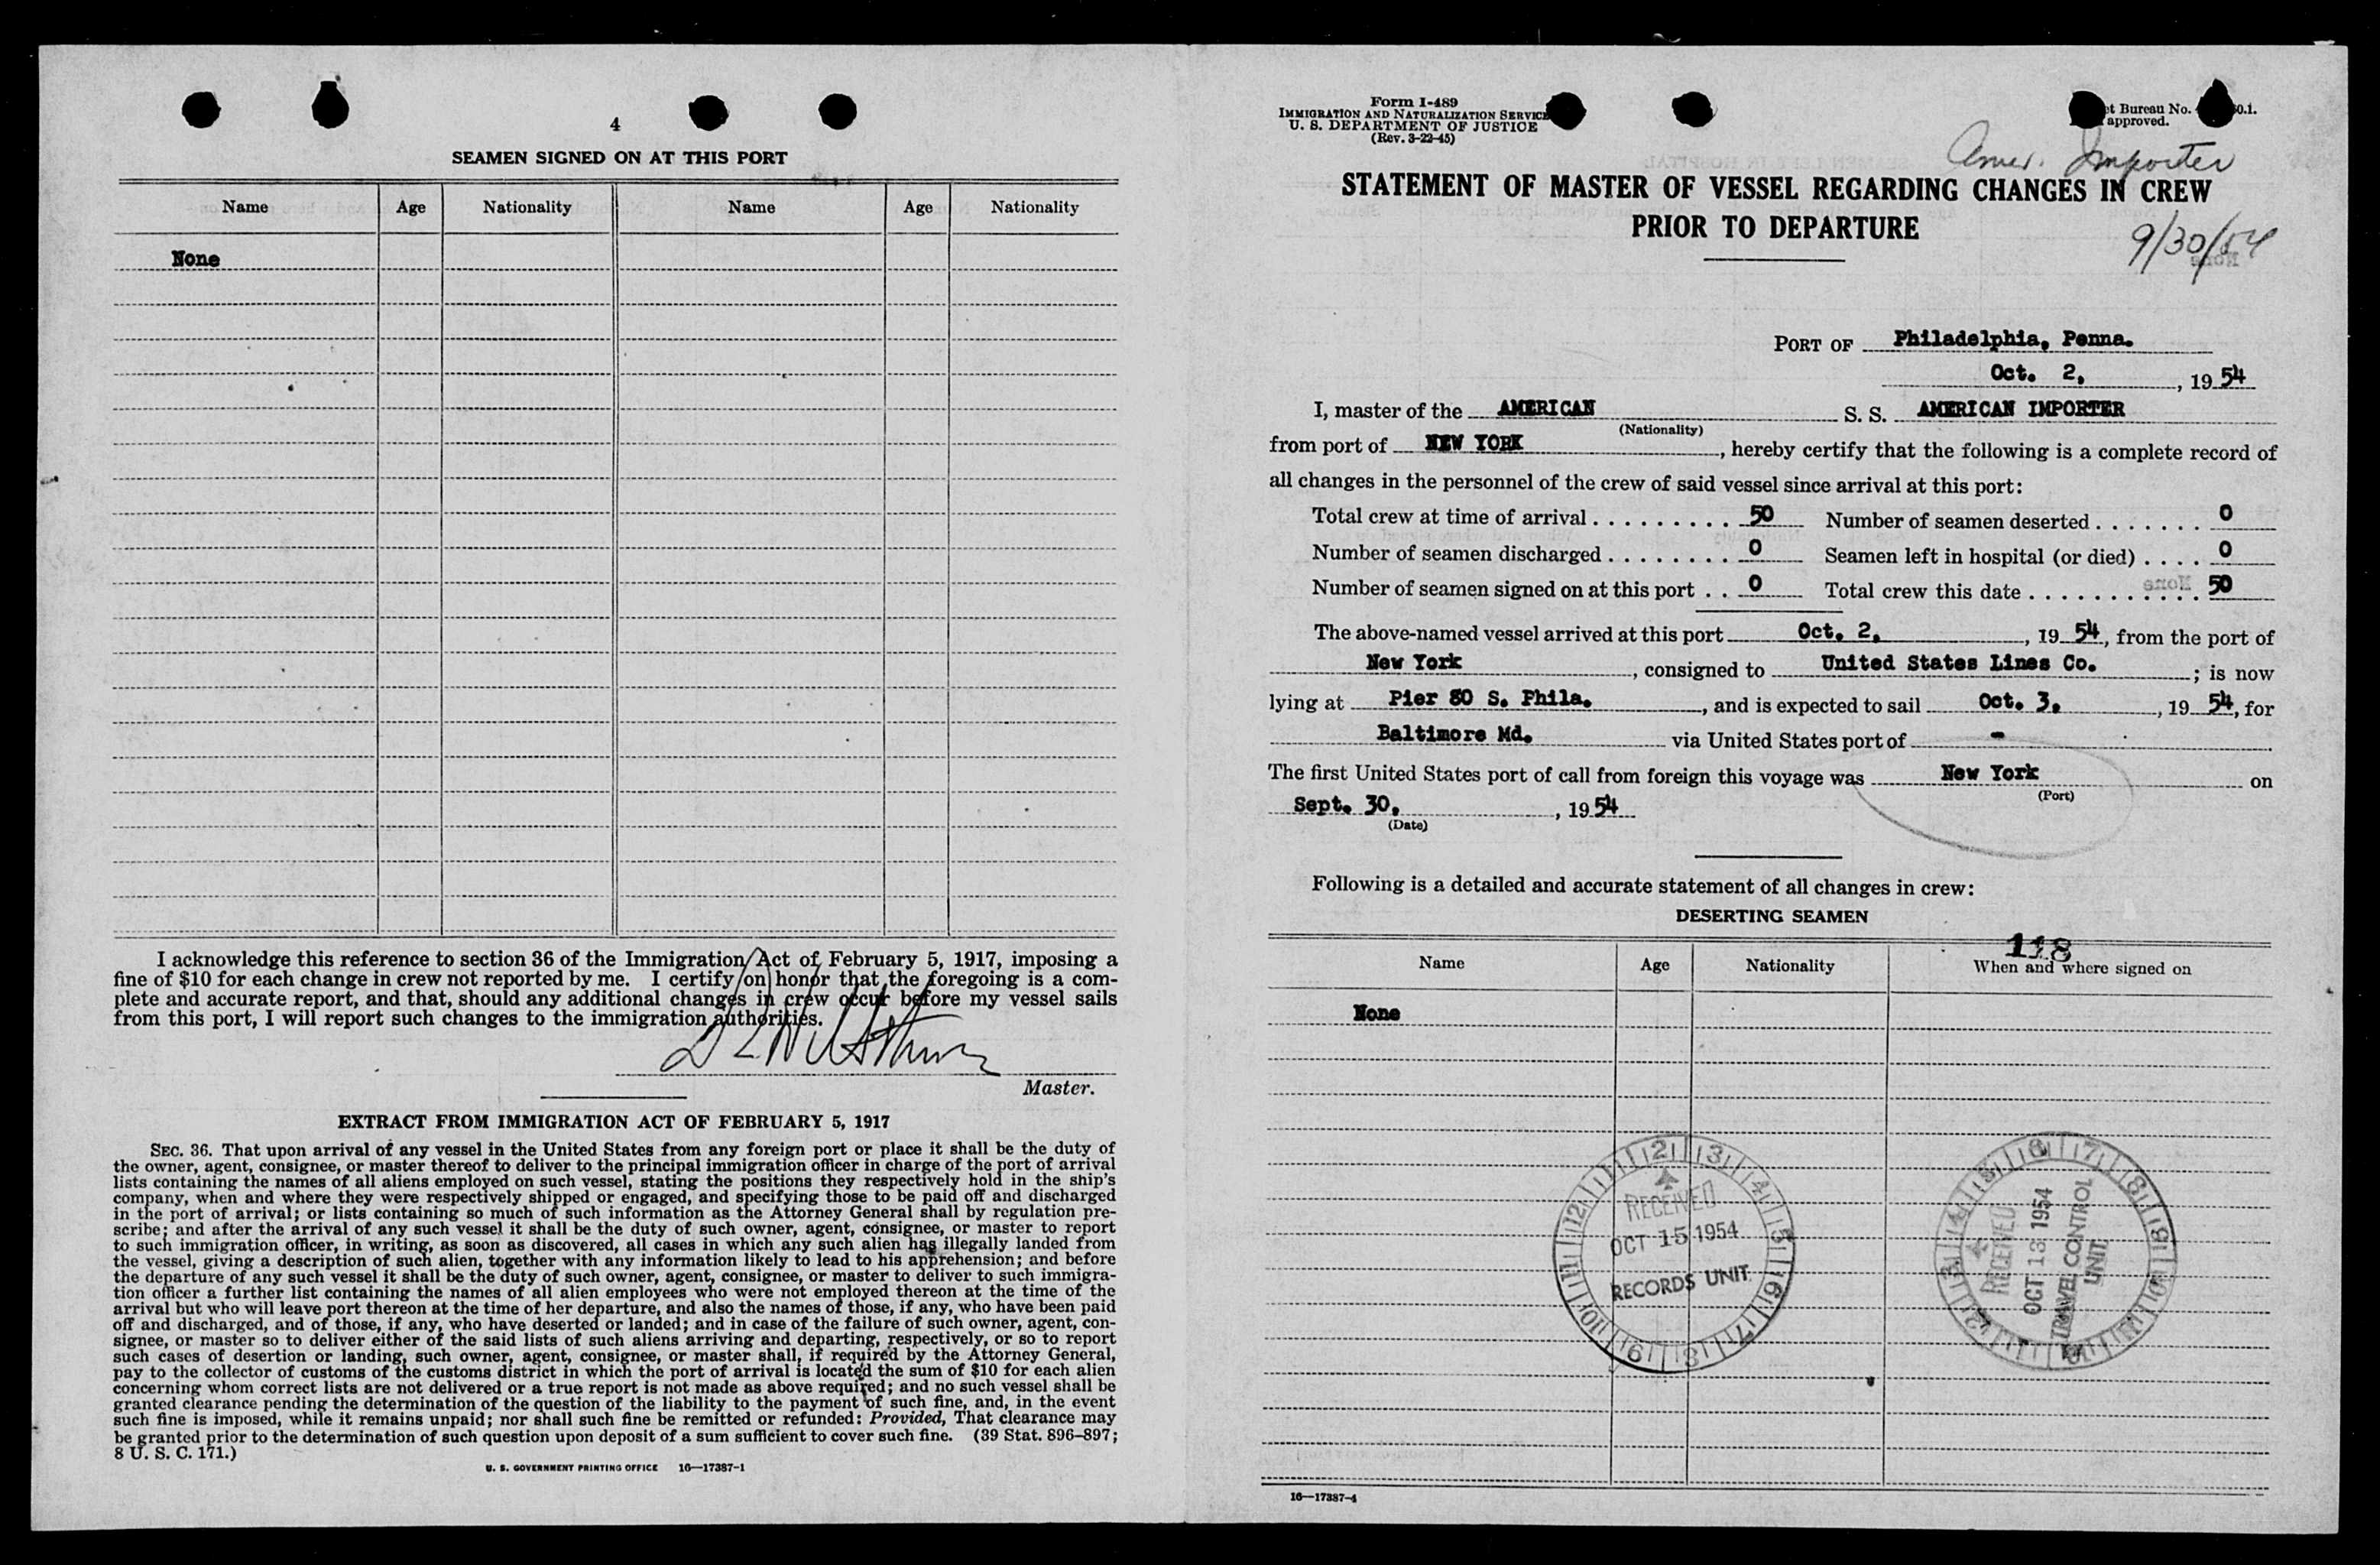 4
SEAMEN SIGNED ON AT THIS PORT
Name Age Nationality Name Age Nationality
None
I acknowledge this reference to section 36 of the Immigration Act of February 5, 1917, imposing a
fine of $10 for each change in crew not reported by me. I certify on honor that the foregoing is a com-
plete and accurate report, and that, should any additional changes in crew occur before my vessel sails
from this port, I will report such changes to the immigration authorities.
Master.
EXTRACT FROM IMMIGRATION ACT OF FEBRUARY 5, 1917
SEC. 36. That upon arrival of any vessel in the United States from any foreign port or place it shall be the duty of
the owner, agent, consignee, or master thereof to deliver to the principal immigration officer in charge of the port of arrival
lists containing the names of all aliens employed on such vessel, stating the positions they respectively hold in the ship's
company, when and where they were respectively shipped or engaged, and specifying those to be paid off and discharged
in the port of arrival; or lists containing so much of such information as the Attorney General shall by regulation pre-
scribe; and after the arrival of any such vessel it shall be the duty of such owner, agent, consignee, or master to report
to such immigration officer, in writing, as soon as discovered, all cases in which any such alien has illegally landed from
the vessel, giving a description of such alien, together with any information likely to lead to his apprehension; and before
the departure of any such vessel it shall be the duty of such owner, agent, consignee, or master to deliver to such immigra-
tion officer a further list containing the names of all alien employees who were not employed thereon at the time of the
arrival but who will leave port thereon at the time of her departure, and also the names of those, if any, who have been paid
off and discharged, and of those, if any, who have deserted or landed; and in case of the failure of such owner, agent, con-
signee, or master so to deliver either of the said lists of such aliens arriving and departing, respectively, or so to report
such cases of desertion or landing, such owner, agent, consignee, or master shall, if required by the Attorney General,
pay to the collector of customs of the customs district in which the port of arrival is located the sum of $10 for each alien
concerning whom correct lists are not delivered or a true report is not made as above required; and no such vessel shall be
granted clearance pending the determination of the question of the liability to the payment of such fine, and, in the event
such fine is imposed, while it remains unpaid; nor shall such fine be remitted or refunded: Provided, That clearance may
be granted prior to the determination of such question upon deposit of a sum sufficient to cover such fine. (39 Stat. 896–897;
8 U. S. C. 171.)
U. S. GOVERNMENT PRINTING OFFICE 16—17387-1
Form I-489
IMMIGRATION AND NATURALIZATION SERVICE
U. S. DEPARTMENT OF JUSTICE
(Rev. 3-22-45)
Bureau No.
approved.
Amer. Importer
STATEMENT OF MASTER OF VESSEL REGARDING CHANGES IN CREW
PRIOR TO DEPARTURE
9/30/54
PORT OF Philadelphia, Penna.
Oct. 2, , 19 54
I, master of the AMERICAN S. S. AMERICAN IMPORTER
(Nationality)
from port of NEW YORK , hereby certify that the following is a complete record of
all changes in the personnel of the crew of said vessel since arrival at this port:
Total crew at time of arrival . . . . . . . . . . 50 Number of seamen deserted . . . . . . . 0
Number of seamen discharged . . . . . . . . 0 Seamen left in hospital (or died) . . . . 0
Number of seamen signed on at this port . . 0 Total crew this date . . . . . . . . . . . 50
The above-named vessel arrived at this port Oct. 2, , 19 54, from the port of
New York , consigned to United States Lines Co. ; is now
lying at Pier 80 S. Phila. , and is expected to sail Oct. 3, , 19 54, for
Baltimore Md. via United States port of - .
The first United States port of call from foreign this voyage was New York on
(Port)
Sept. 30, , 19 54
(Date)
Following is a detailed and accurate statement of all changes in crew:
DESERTING SEAMEN
118
Name Age Nationality When and where signed on
None
RECEIVED
OCT 15 1954
RECORDS UNIT
RECEIVED
OCT 13 1954
TRAVEL CONTROL
UNIT
16—17387-4